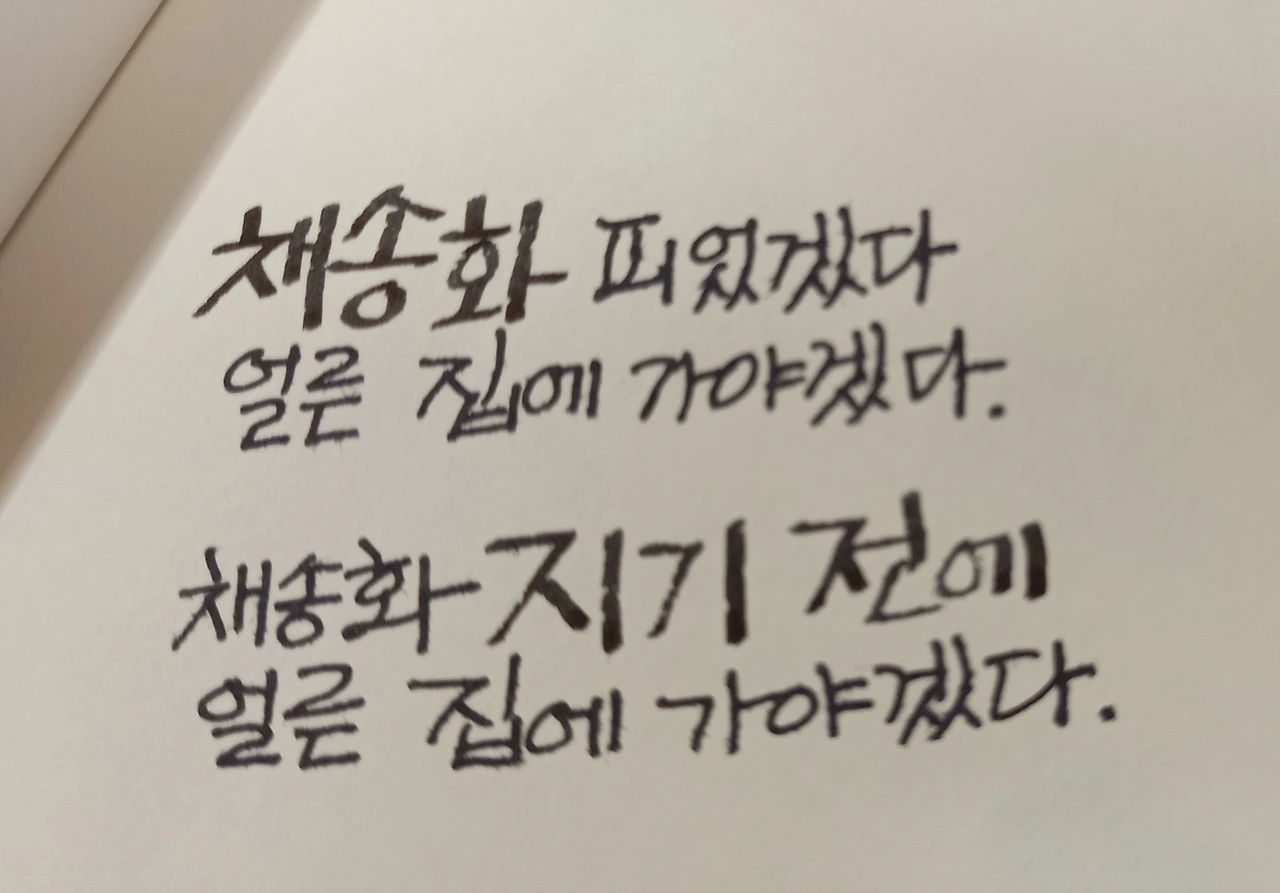 채송화 피었겠다
얼른 집에 가야겠다.
채송화 지기 전에
얼른 집에 가야겠다.